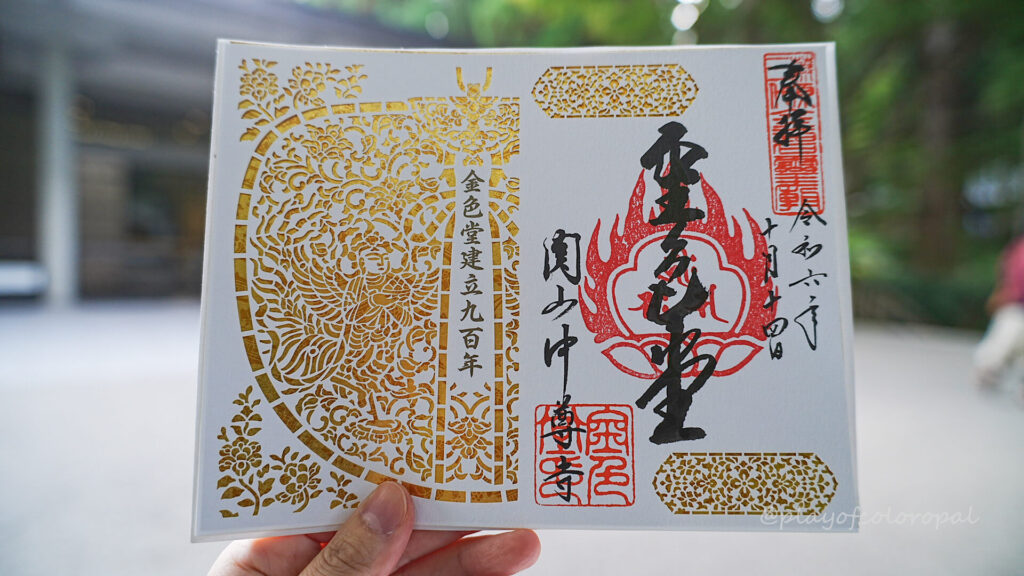 奉拝
令和六年
十月十四日
金色堂
関山中尊寺
金色堂建立九百年
@playofcoloropal